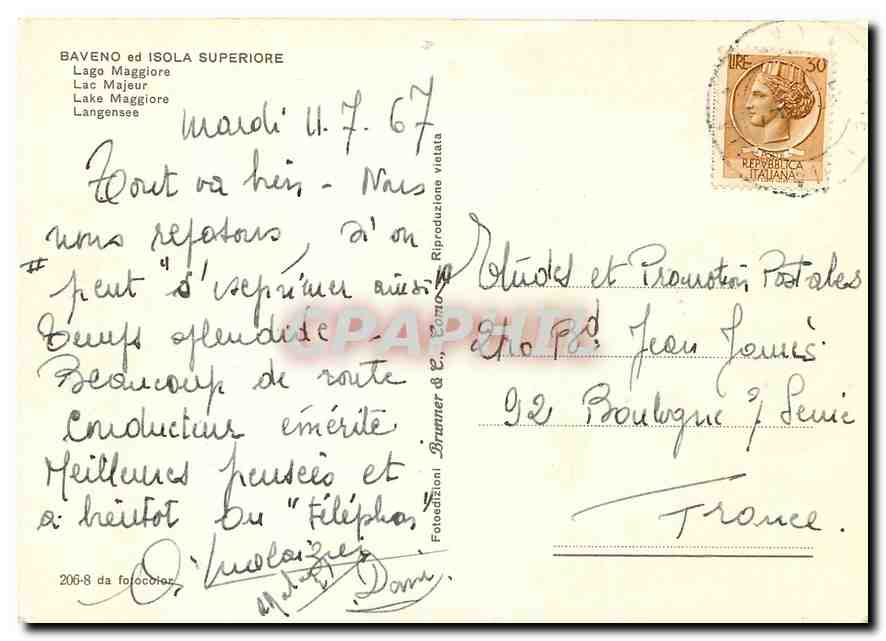 BAVENO ed ISOLA SUPERIORE
Lago Maggiore
Lac Majeur
Lake Maggiore
Langensee
Mardi 11.7.67
Tout va bien - Nous
nous reposons, si on
peut "s'exprimer ainsi"
Temps splendide -
Beaucoup de route
Conducteur émérite
Meilleures pensées et
à bientôt au "téléphon"
206-8 da fotocolor
Fotoedizioni Brunner & C., Como - Riproduzione vietata
LIRE 30
REPVBBLICA
ITALIANA
Etudes et Promotion Postales
Bd Jean Jaurès
92 Boulogne s/ Seine
France.
CPAPHIL